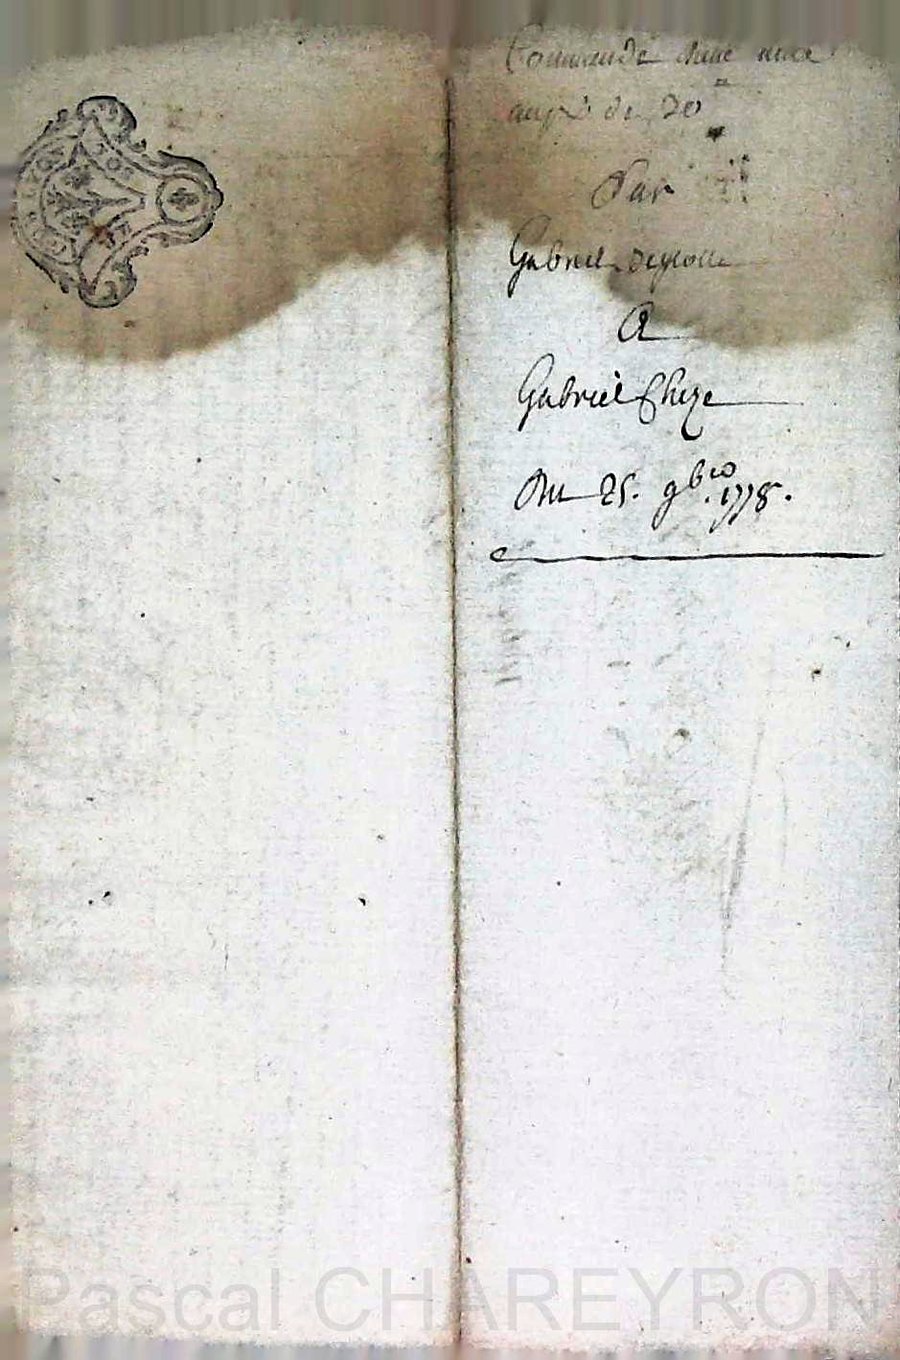 Commande d'une mule
au prix de 70
Par
Gabriel deglolle
A
Gabriel Cheze
Du 25. 9bre. 1778.
Pascal CHAREYRON